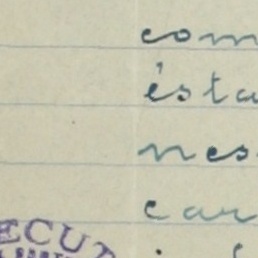 com
ésta
nes
car
ECU